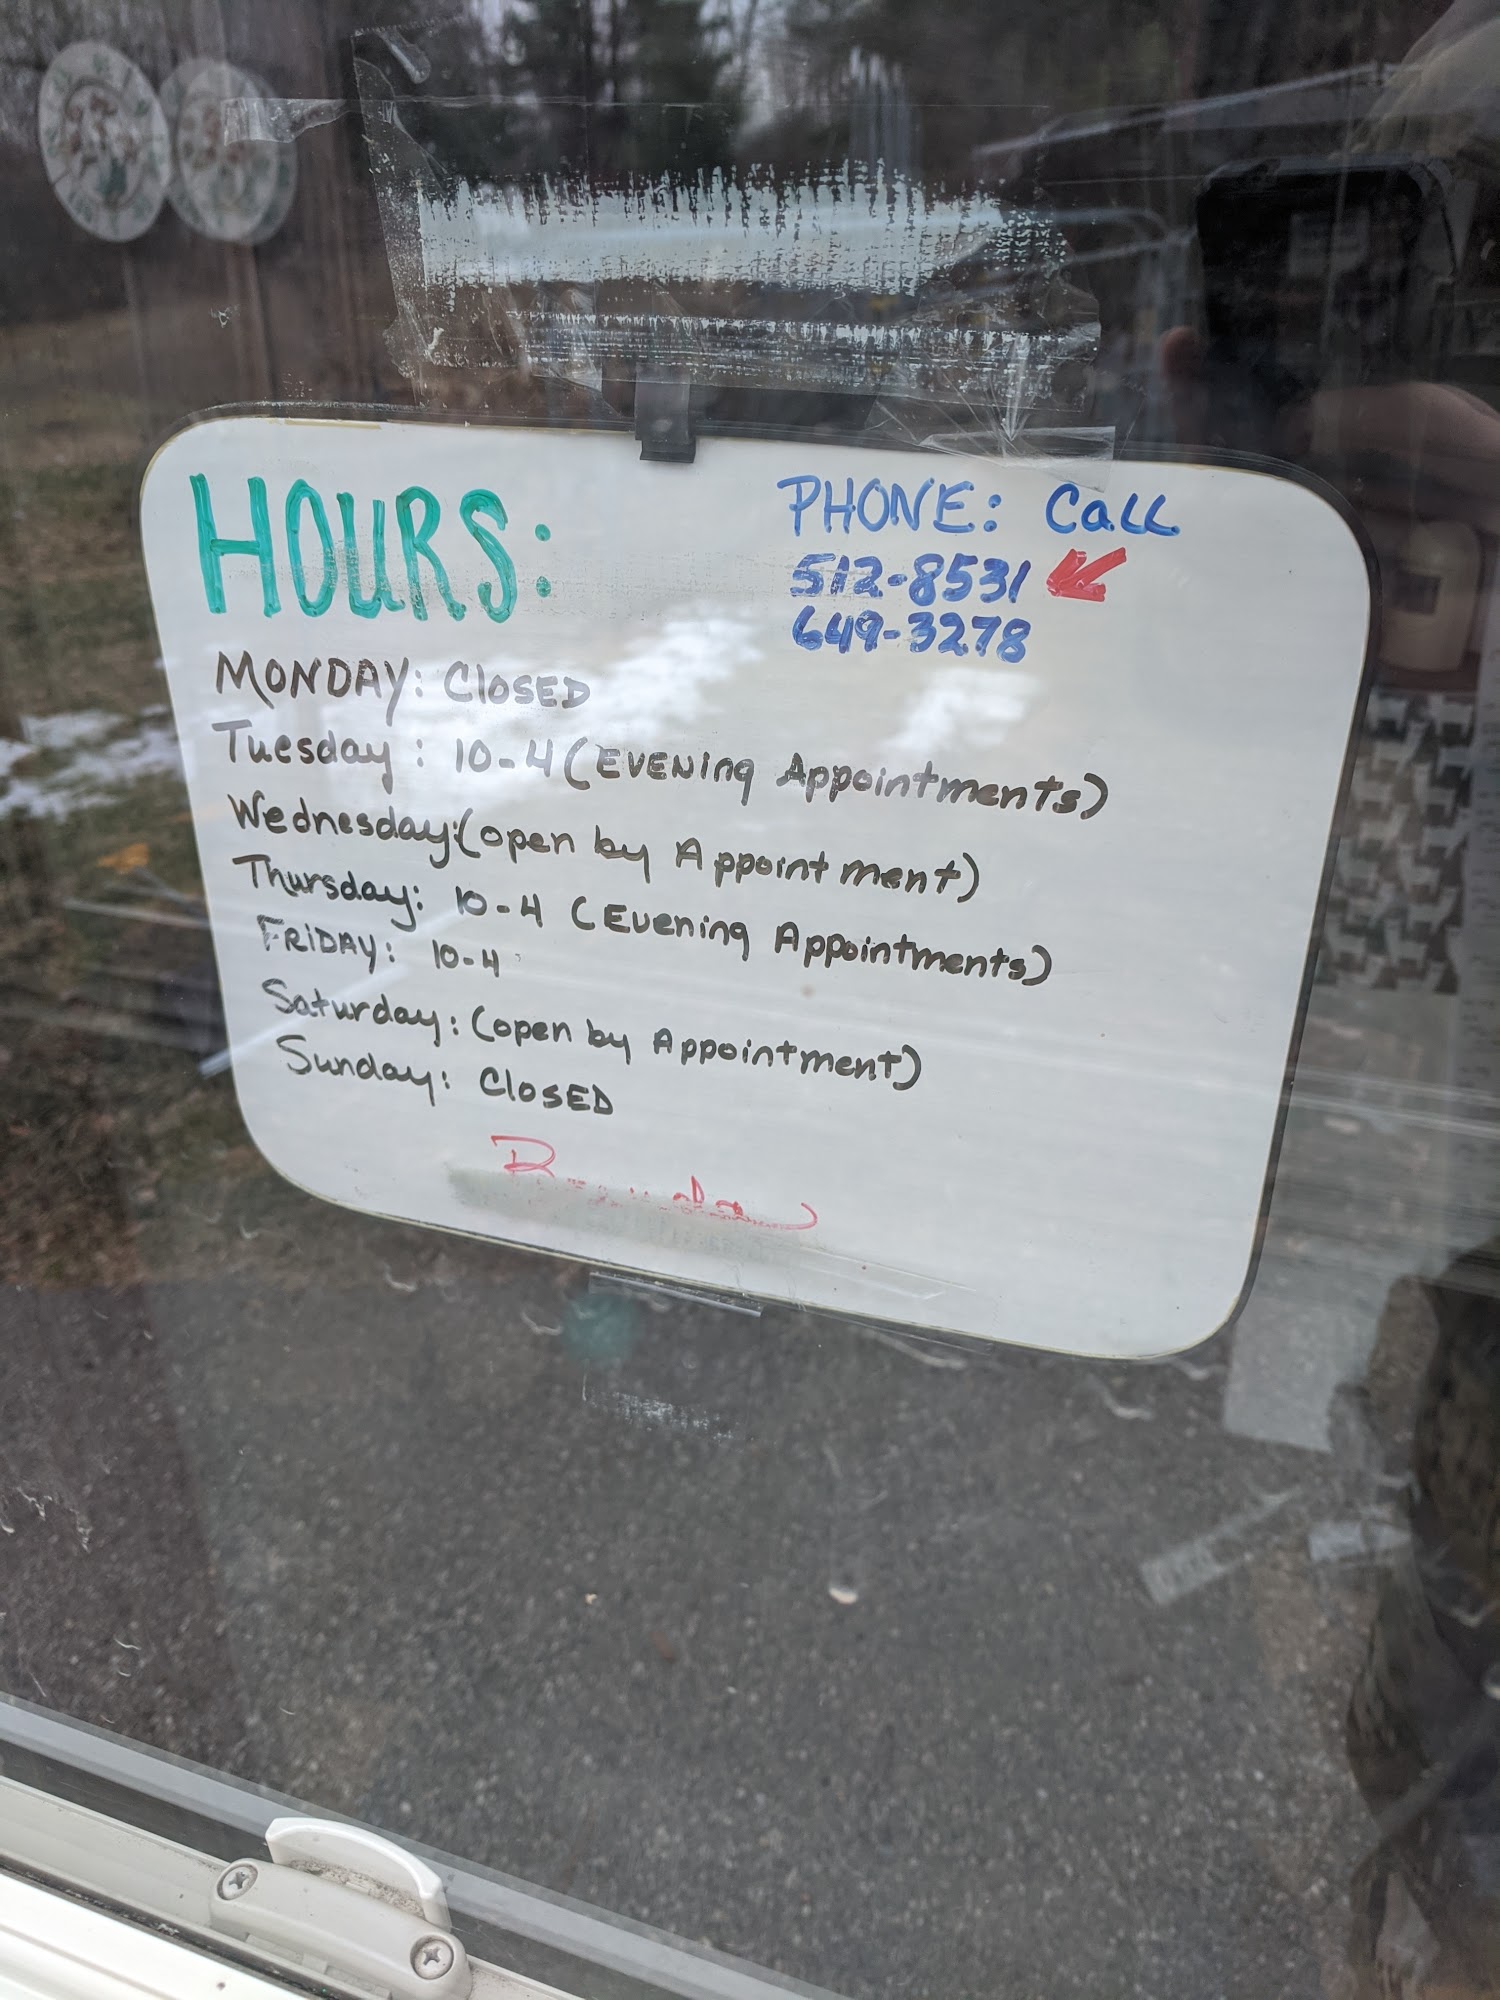 HOURS:
PHONE: Call
512-8531
649-3278
MONDAY: CLOSED
Tuesday: 10-4 (EVENING Appointments)
Wednesday: (open by Appointment)
Thursday: 10-4 (Evening Appointments)
FRIDAY: 10-4
Saturday: (open by Appointment)
Sunday: CLOSED